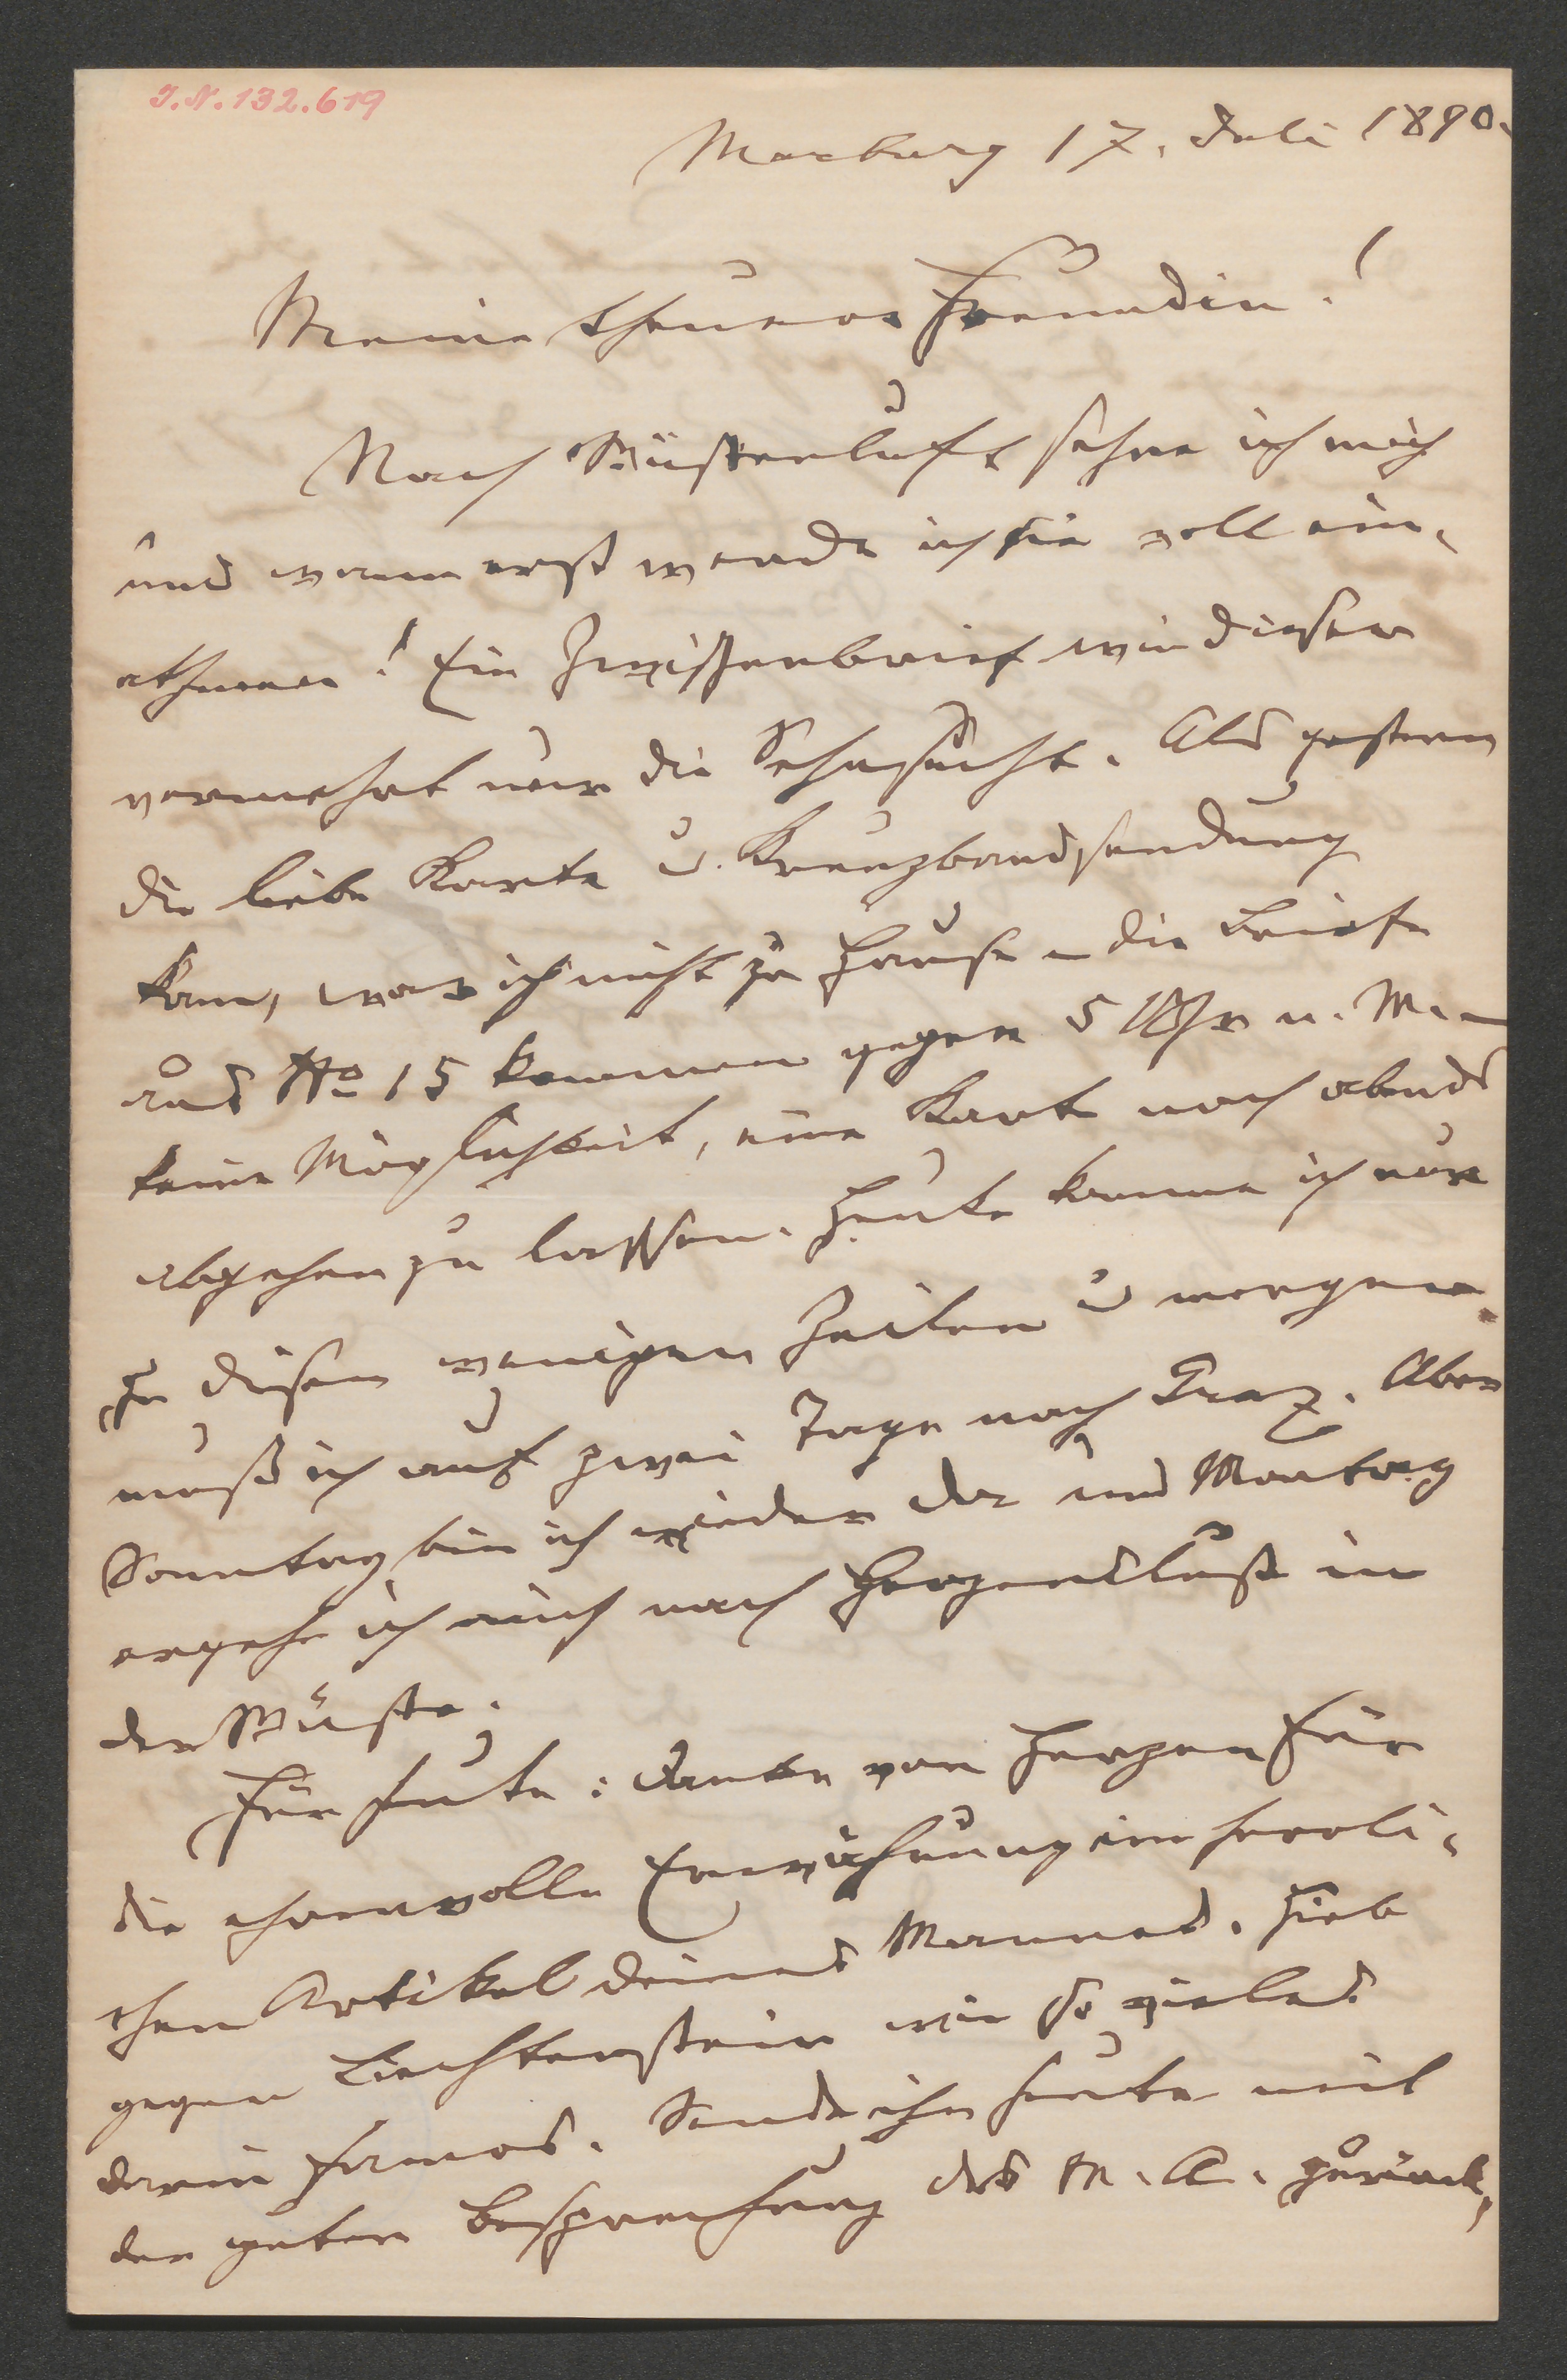 I.N. 132.619
Marburg 17. Juli 1890.
Meine theuere Freundin!
Nach Wüstenluft sehne ich mich
und wann erst werde ich sie voll ein-
athmen! Ein Zwischenbrief wie dieser
vermehrt nur die Sehnsucht. Als gestern
die liebe Karte u. Kreuzbandsendung
kam, war ich nicht zu Hause – die Briefe
aus No 15 kommen gegen 5 Uhr n. M. –
keine Möglichkeit, eine Karte noch abends
abgehen zu lassen. Heute komme ich nur
zu diesen wenigen Zeilen u morgen
muß ich auf zwei Tage nach Graz. Aber
Sonntag bin ich wieder da und Montag
ergehe ich mich nach Herzenslust in
der Wüste.
Für heute: danke von Herzen für
die ehrenvolle Erwähnung im herrli-
chen Artikel deines Mannes. Hieb
gegen Liechtenstein wie so vieles
darin famos. Sende ihn heute mit
der guten Besprechung des M. A. zurück,